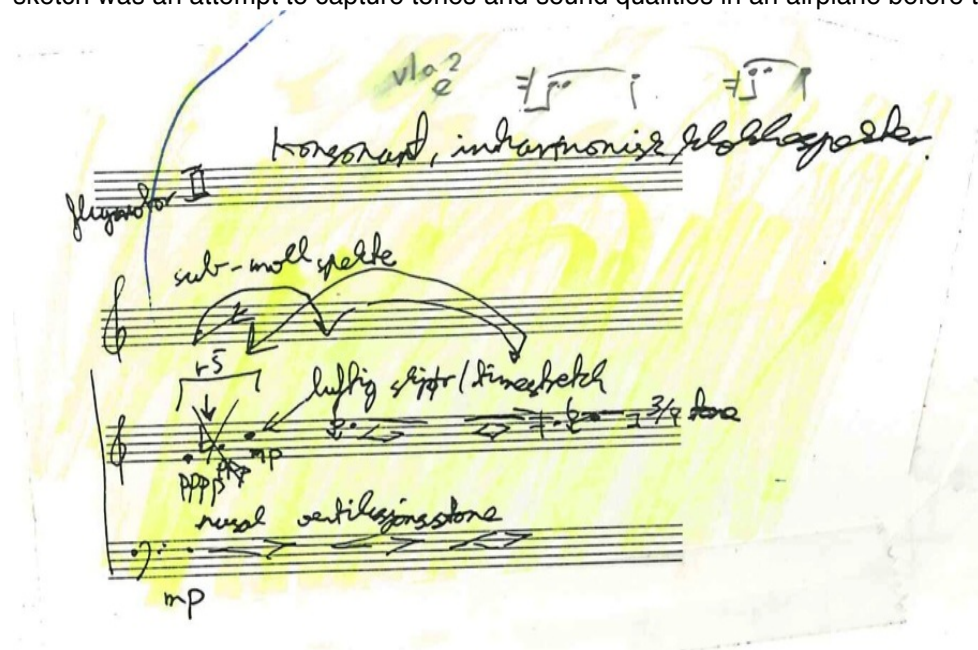 sketch was an attempt to capture tones and sound qualities in an airplane before t
vla 2
konsonant, inharmonisk, klokkespekter.
flymotor II
sub-moll spekte
r5
luftig / timestretch
3/4 tone
pppp mp
nasal ventilasjonstone
mp